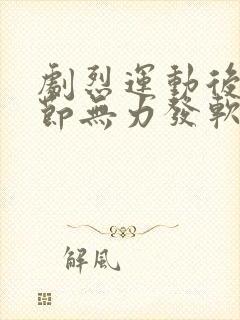 劇烈運動後
節無力發軟
解風